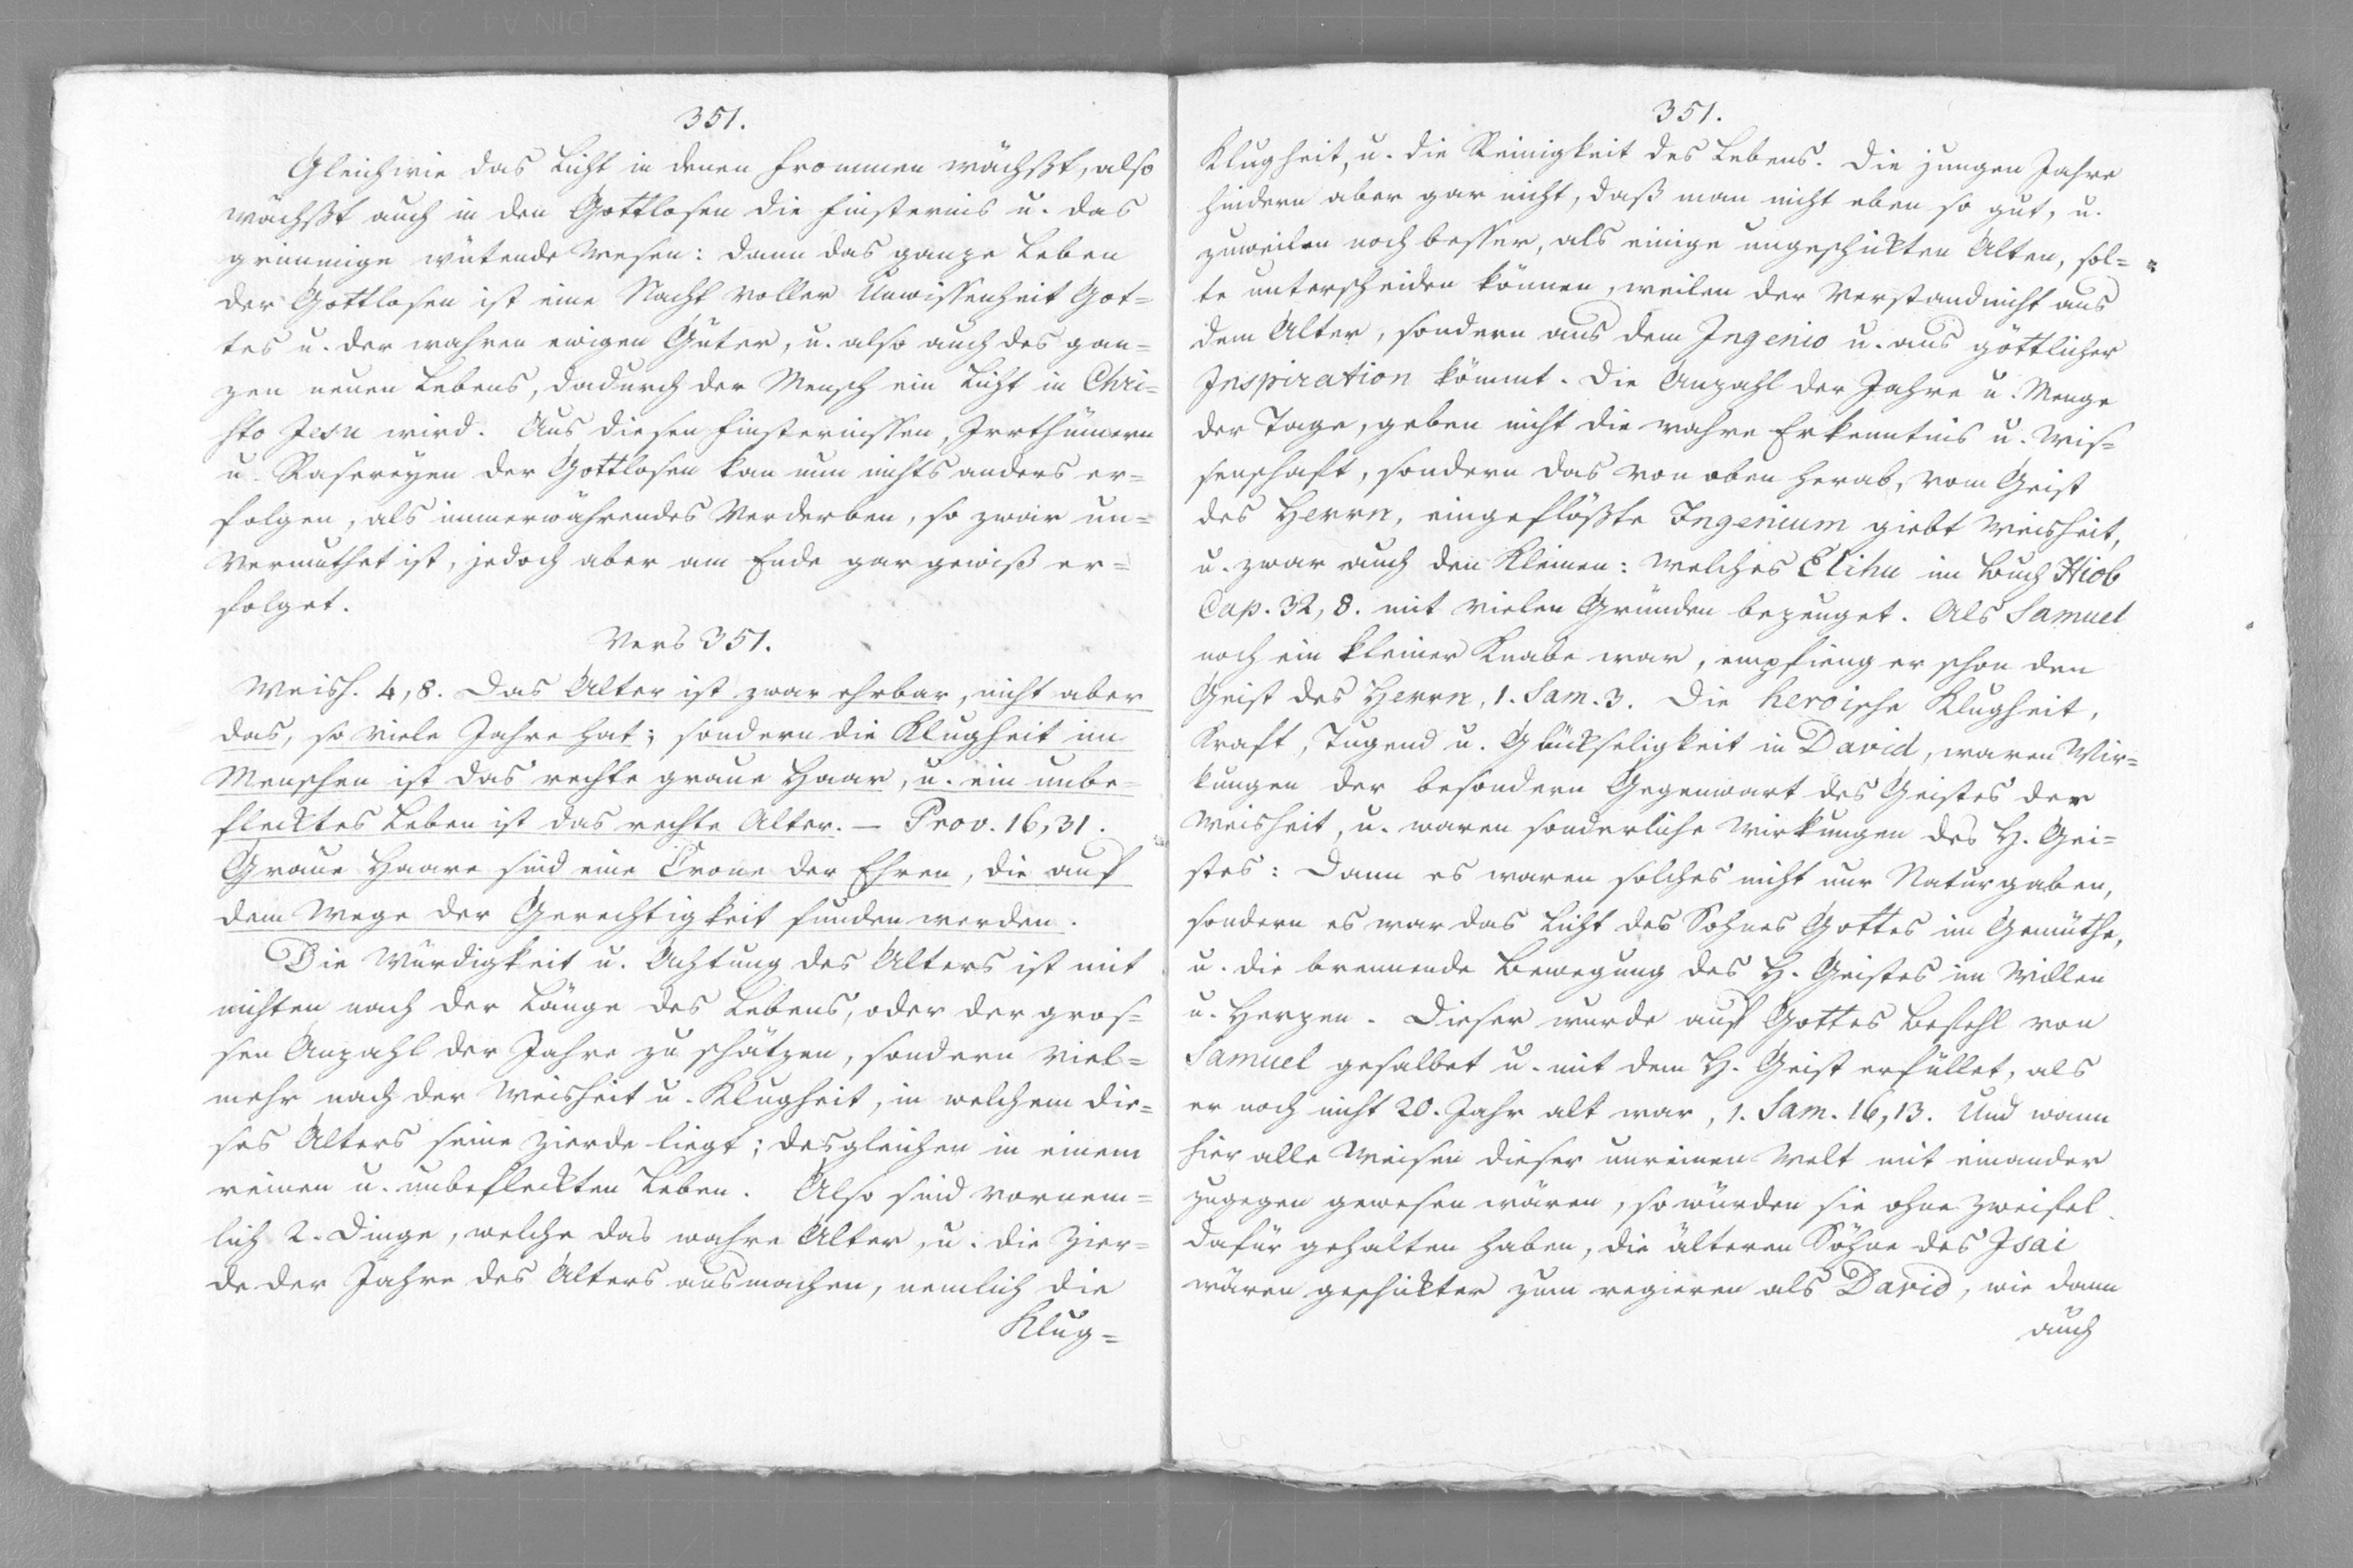 351.
Gleichwie das Licht in denen Frommen wächßt, also
wächßt auch in den Gottlosen die Finsternis u. das
grimmige wütende Wesen: Dann das ganze Leben
der Gottlosen ist eine Nacht voller Unwissenheit Got=
tes u. der wahren ewigen Güter, u. also auch des gan=
zen neuen Lebens, dadurch der Mensch ein Licht in Chri=
sto Jesu wird. Aus diesen Finsternissen, Irrthümern
u. Rasereyen der Gottlosen kan nun nichts anders er=
folgen, als immerwährendes Verderben, so zwar un=
vermuthet ist, jedoch aber am Ende gar gewiß er=
folget.
Vers 351.
Weish. 4, 8. Das Alter ist zwar ehrbar, nicht aber
das, so viele Jahre hat; sondern die Klugheit im
Menschen ist das rechte graue Haar, u. ein unbe=
flecktes Leben ist das rechte Alter. — Prov. 16, 31.
Graue Haare sind eine Crone der Ehren, die auf
dem Wege der Gerechtigkeit funden werden.
Die Würdigkeit u. Achtung des Alters ist mit
nichten nach der Länge des Lebens, oder der gros=
sen Anzahl der Jahre zu schätzen, sondern viel=
mehr nach der Weisheit u. Klugheit, in welchem die=
ses Alters seine Zierde liegt; desgleichen in einem
reinen u. unbefleckten Leben. Also sind vornem=
lich 2. Dinge, welche das wahre Alter, u. die Zier=
de der Jahre des Alters ausmachen, nemlich die
Klug=
351.
Klugheit, u. die Reinigkeit des Lebens. Die jungen Jahre
hindern aber gar nicht, daß man nicht eben so gut, u.
zuweilen noch besser, als einige ungeschickten Alten, sol=
te unterscheiden können, weilen der Verstand nicht aus
dem Alter, sondern aus dem Ingenio u. aus göttlicher
Inspiration kömmt. Die Anzahl der Jahre u. Menge
der Tage, geben nicht die wahre Erkenntnis u. Wis=
senschaft, sondern das von oben herab, vom Geist
des Herrn, eingeflößte Ingenium giebt Weisheit,
u. zwar auch den Kleinen: welches Elihu im Buch Hiob
Cap. 32, 8. mit vielen Gründen bezeuget. Als Samuel
noch ein kleiner Knabe war, empfieng er schon den
Geist des Herrn, 1. Sam. 3. Die heroische Klugheit,
Kraft, Tugend u. Glückseligkeit in David, waren Wir=
kungen der besondern Gegenwart des Geistes der
Weisheit, u. waren sonderliche Wirkungen des H. Gei=
stes: Dann es waren solches nicht nur Naturgaben,
sondern es war das Licht des Sohnes Gottes im Gemüthe,
u. die brennende Bewegung des H. Geistes im Willen
u. Herzen. Dieser wurde auf Gottes Befehl von
Samuel gesalbet u. mit dem H. Geist erfüllet, als
er noch nicht 20. Jahr alt war, 1. Sam. 16, 13. Und wann
hier alle Weisen dieser unreinen Welt mit einander
zugegen gewesen wären, so würden sie ohne Zweifel
dafür gehalten haben, die älteren Söhne des Isai
wären geschickter zum regieren als David, wie dann
auch